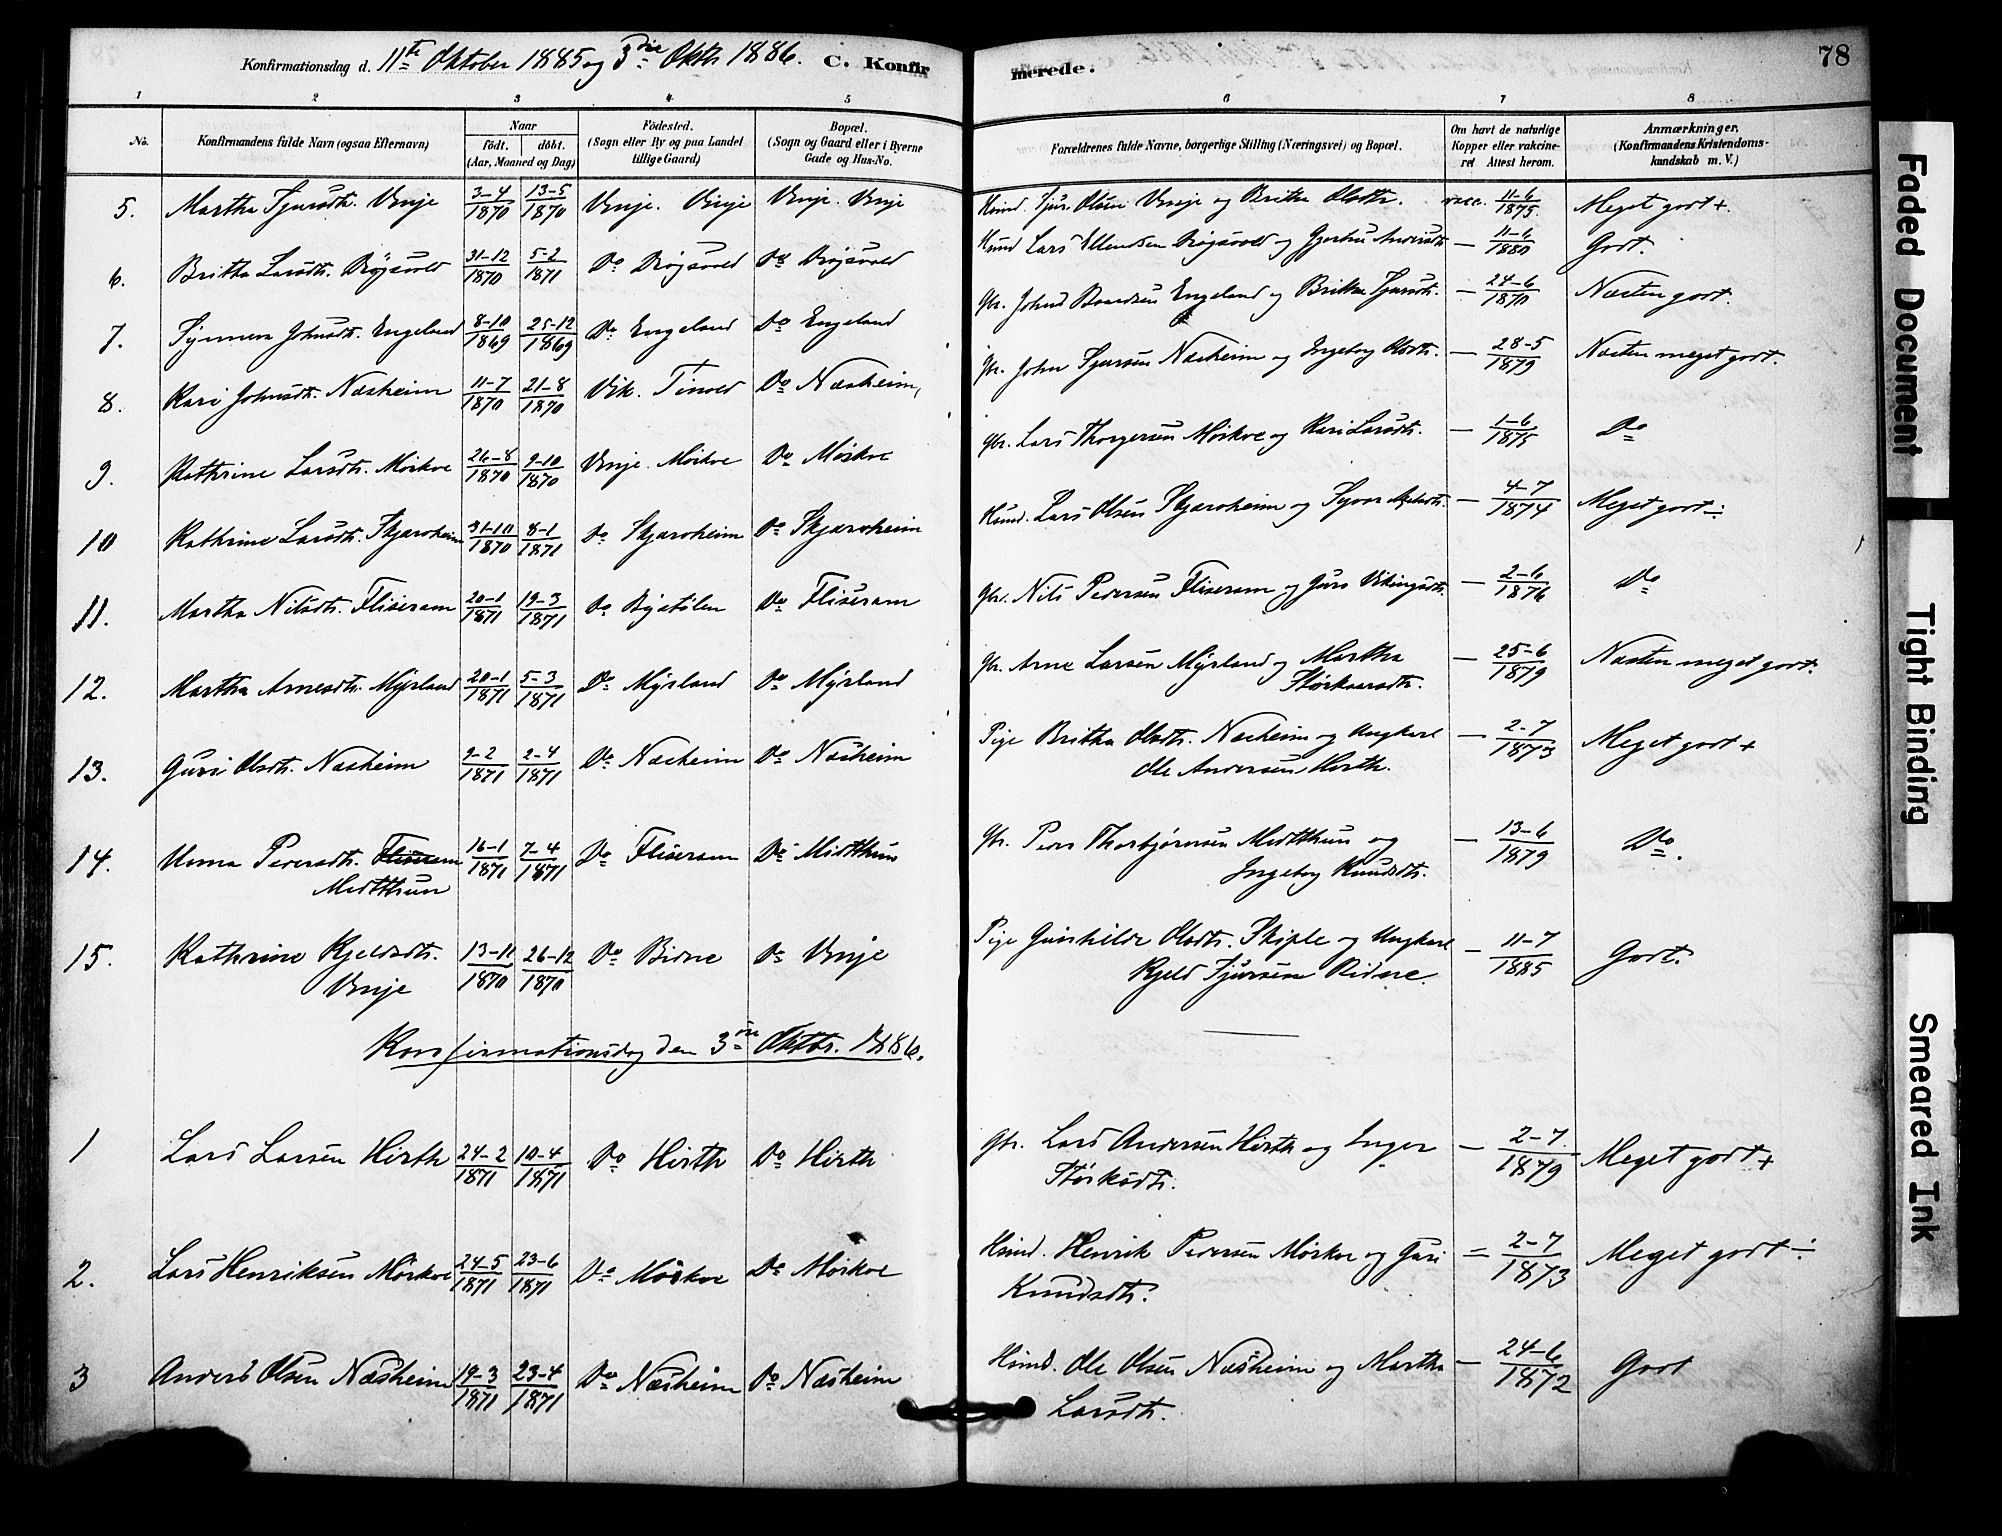 Konfirmationsdag d. 11te Oktober 1885 og 3die Oktbr 1886. C. Konfirmerede. 78
1 2 3 4 5 6 7 8
No. Konfirmandens fulde Navn (ogsaa Efternavn) Naar født. døbt. (Aar, Maaned og Dag) Fødested. (Sogn eller By og paa Landet tillige Gaard) Bopæl. (Sogn og Gaard eller i Byerne Gade og Hus-No. Forældrenes fulde Navne, borgerlige Stilling (Næringsvei) og Bopæl. Om havt de naturlige Kopper eller vakcineret Attest herom. Anmærkninger. (Konfirmandens Kristendomskundskab m. V.)
5. Martha Sjursdtr. Vinje 3-4 1870 13-5 1870 Vinje. Vinje Vinje. Vinje Husmd. Sjur Olsen Vinje og Britha Olsdtr. vacc. 11-6 1875 Meget godt +.
6. Britha Larsdtr. Drøgsvold 31-12 1870 5-2 1871 Do Drøgsvold Do Drøgsvold Husmd Lars Ellendsen Drøgsvold og Gjertru Andersdtr — 11-6 1880 Godt.
7. Synneva Johnsdtr. Engeland 8-10 1869 25-12 1869 Do Engeland Do Engeland Gbr. Johns Baardsen Engeland og Britha Sjursdtr. — 24-6 1870 Næsten godt.
8. Kari Johnsdtr. Næsheim 11-7 1870 21-8 1870 Vik. Tinvld Do Næsheim, Gbr. John Sjursen Næsheim og Ingeborg Olsdtr. — 28-5 1879 Næsten meget godt.
9. Kathrine Larsdtr. Mörkve 26-8 1870 9-10 1870 Vinje. Mörkve Do Mörkve Gbr. Lars Thorgersen Mörkve og Kari Larsdtr. — 1-6 1875 Do
10 Kathrine Larsdtr. Skjærvheim 31-10 1870 8-1 1871 Do Skjærvheim Do Skjærvheim Husmd. Lars Olsen Skjærvheim og — 4-7 1874 Meget godt ÷
11. Martha Nilsdtr. Fliseram 20-1 1871 19-3 1871 Do Bystölen Do Fliseram Gbr. Nils Pedersen Fliseram og Guro Vikingsdtr. — 2-6 1876 Do
12. Martha Arnesdtr. Myrland 20-1 1871 5-3 1871 Do Myrland Do Myrland Gbr. Arne Larsen Myrland og Martha Størkaarsdtr. — 25-6 1879 Næsten meget godt.
13. Guri Olsdtr. Næsheim 9-2 1871 2-4 1871 Do Næsheim Do Næsheim Pige Britha Olsdtr. Næsheim og Ungkarl Ole Andersen Hirth. — 2-7 1873 Meget godt +
14. Unna Pedersdtr. Fliseram Midtthun 16-1 1871 7-4 1871 Do Fliseram Do Midtthun Gbr. Peder Thorbjørnsen Midtthun og Ingeborg Knudsdtr. — 13-6 1879 Do.
15. Kathrine Kjeldsdtr. Vinje 13-11 1870 26-12 1870 Do Bidne Do Vinje Pige Gunhilde Olsdtr. Skiple og Ungkarl Kjeld Sjursen Bidne. — 11-7 1885 Godt.
Konfirmationsdag den 3die Oktbr. 1886.
1 Lars Larsen Hirth 24-2 1871 10-4 1871 Do Hirth Do Hirth Gbr. Lars Andersen Hirth og Inger Störksdtr. — 2-7 1879 Meget godt +
2. Lars Henriksen Mörkve 24-5 1871 23-6 1871 Do Mörkve Do Mörkve Husmd. Henrik Pedersen Mörkve og Guri Knudsdtr. = 2-7 1873 Meget godt ÷
3 Anders Olsen Næsheim 19-3 1871 23-4 1871 Do Næsheim Do Næsheim Husmd. Ole Olsen Næsheim og Martha Larsdtr. — 24-6 1872 Godt
Faded Document
Tight Binding
Smeared Ink